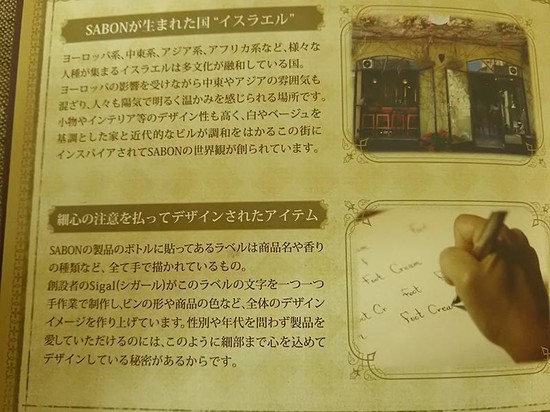 SABONが生まれた国“イスラエル”
ヨーロッパ系、中東系、アジア系、アフリカ系など、様々な
人種が集まるイスラエルは多文化が融和している国。
ヨーロッパの影響を受けながら中東やアジアの雰囲気も
混ざり、人々も陽気で明るく温かみを感じられる場所です。
小物やインテリア等のデザイン性も高く、白やベージュを
基調とした家と近代的なビルが調和をはかるこの街に
インスパイアされてSABONの世界観が創られています。
細心の注意を払ってデザインされたアイテム
SABONの製品のボトルに貼ってあるラベルは商品名や香り
の種類など、全て手で描かれているもの。
創設者のSigal(シガール)がこのラベルの文字を一つ一つ
手作業で制作し、ビンの形や商品の色など、全体のデザイン
イメージを作り上げています。性別や年代を問わず製品を
愛していただけるのには、このように細部まで心を込めて
デザインしている秘密があるからです。
Foot Cream
Foot
Foot Crea